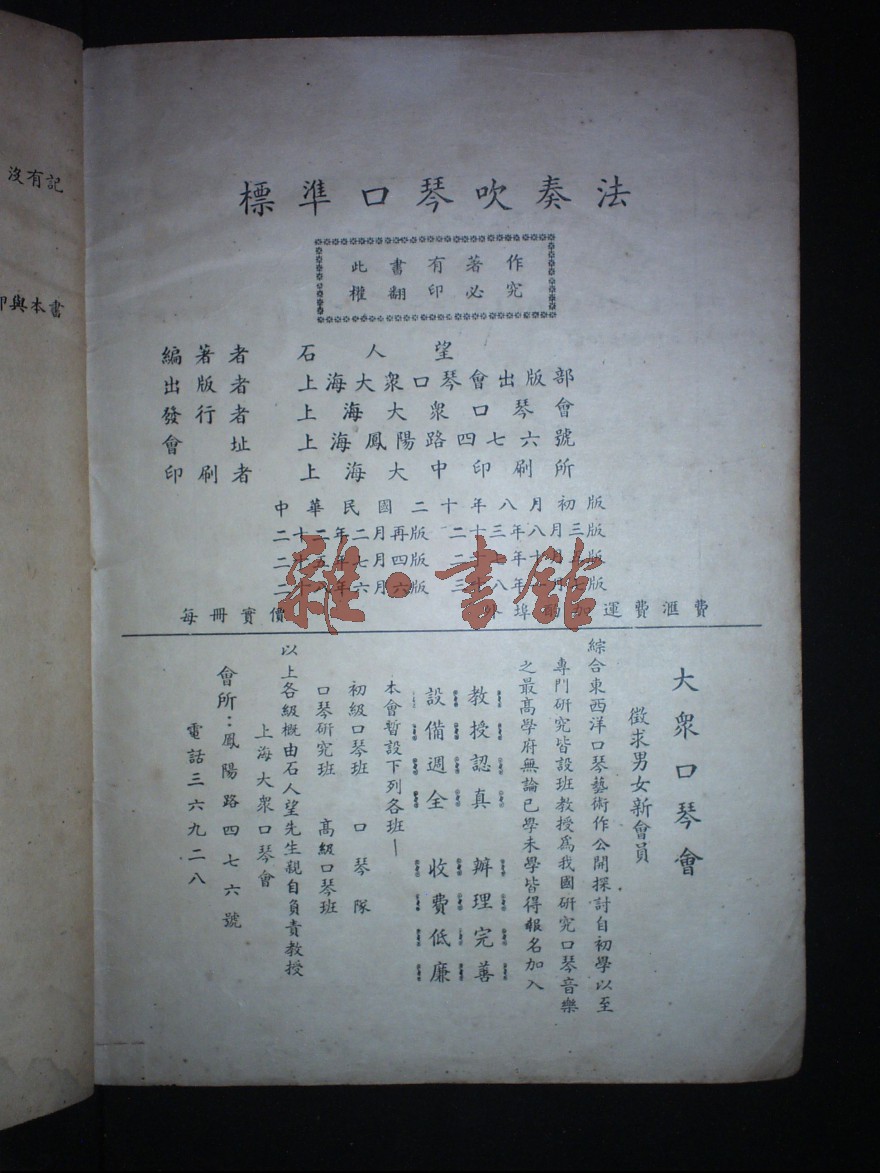 沒有記
印與本書
標準口琴吹奏法
此書有著作
權翻印必究
編著者 石人望
出版者 上海大衆口琴會出版部
發行者 上海大衆口琴會
會址 上海鳳陽路四七六號
印刷者 上海大中印刷所
中華民國二十年八月初版
二十二年二月再版 二十三年八月三版
二十五年七月四版 二十七年十月五版
二十八年六月六版 三十八年 月七版
每冊實價 外埠酌加運費滙費
雜·書館
大衆口琴會
徵求男女新會員
綜合東西洋口琴藝術作公開探討自初學以至
專門研究皆設班教授爲我國研究口琴音樂
之最高學府無論已學未學皆得報名加入
教授認真 辦理完善
設備週全 收費低廉
本會暫設下列各班—
初級口琴班 口琴隊
口琴研究班 高級口琴班
以上各級概由石人望先生親自負責教授
上海大衆口琴會
會所：鳳陽路四七六號
電話三六九二八